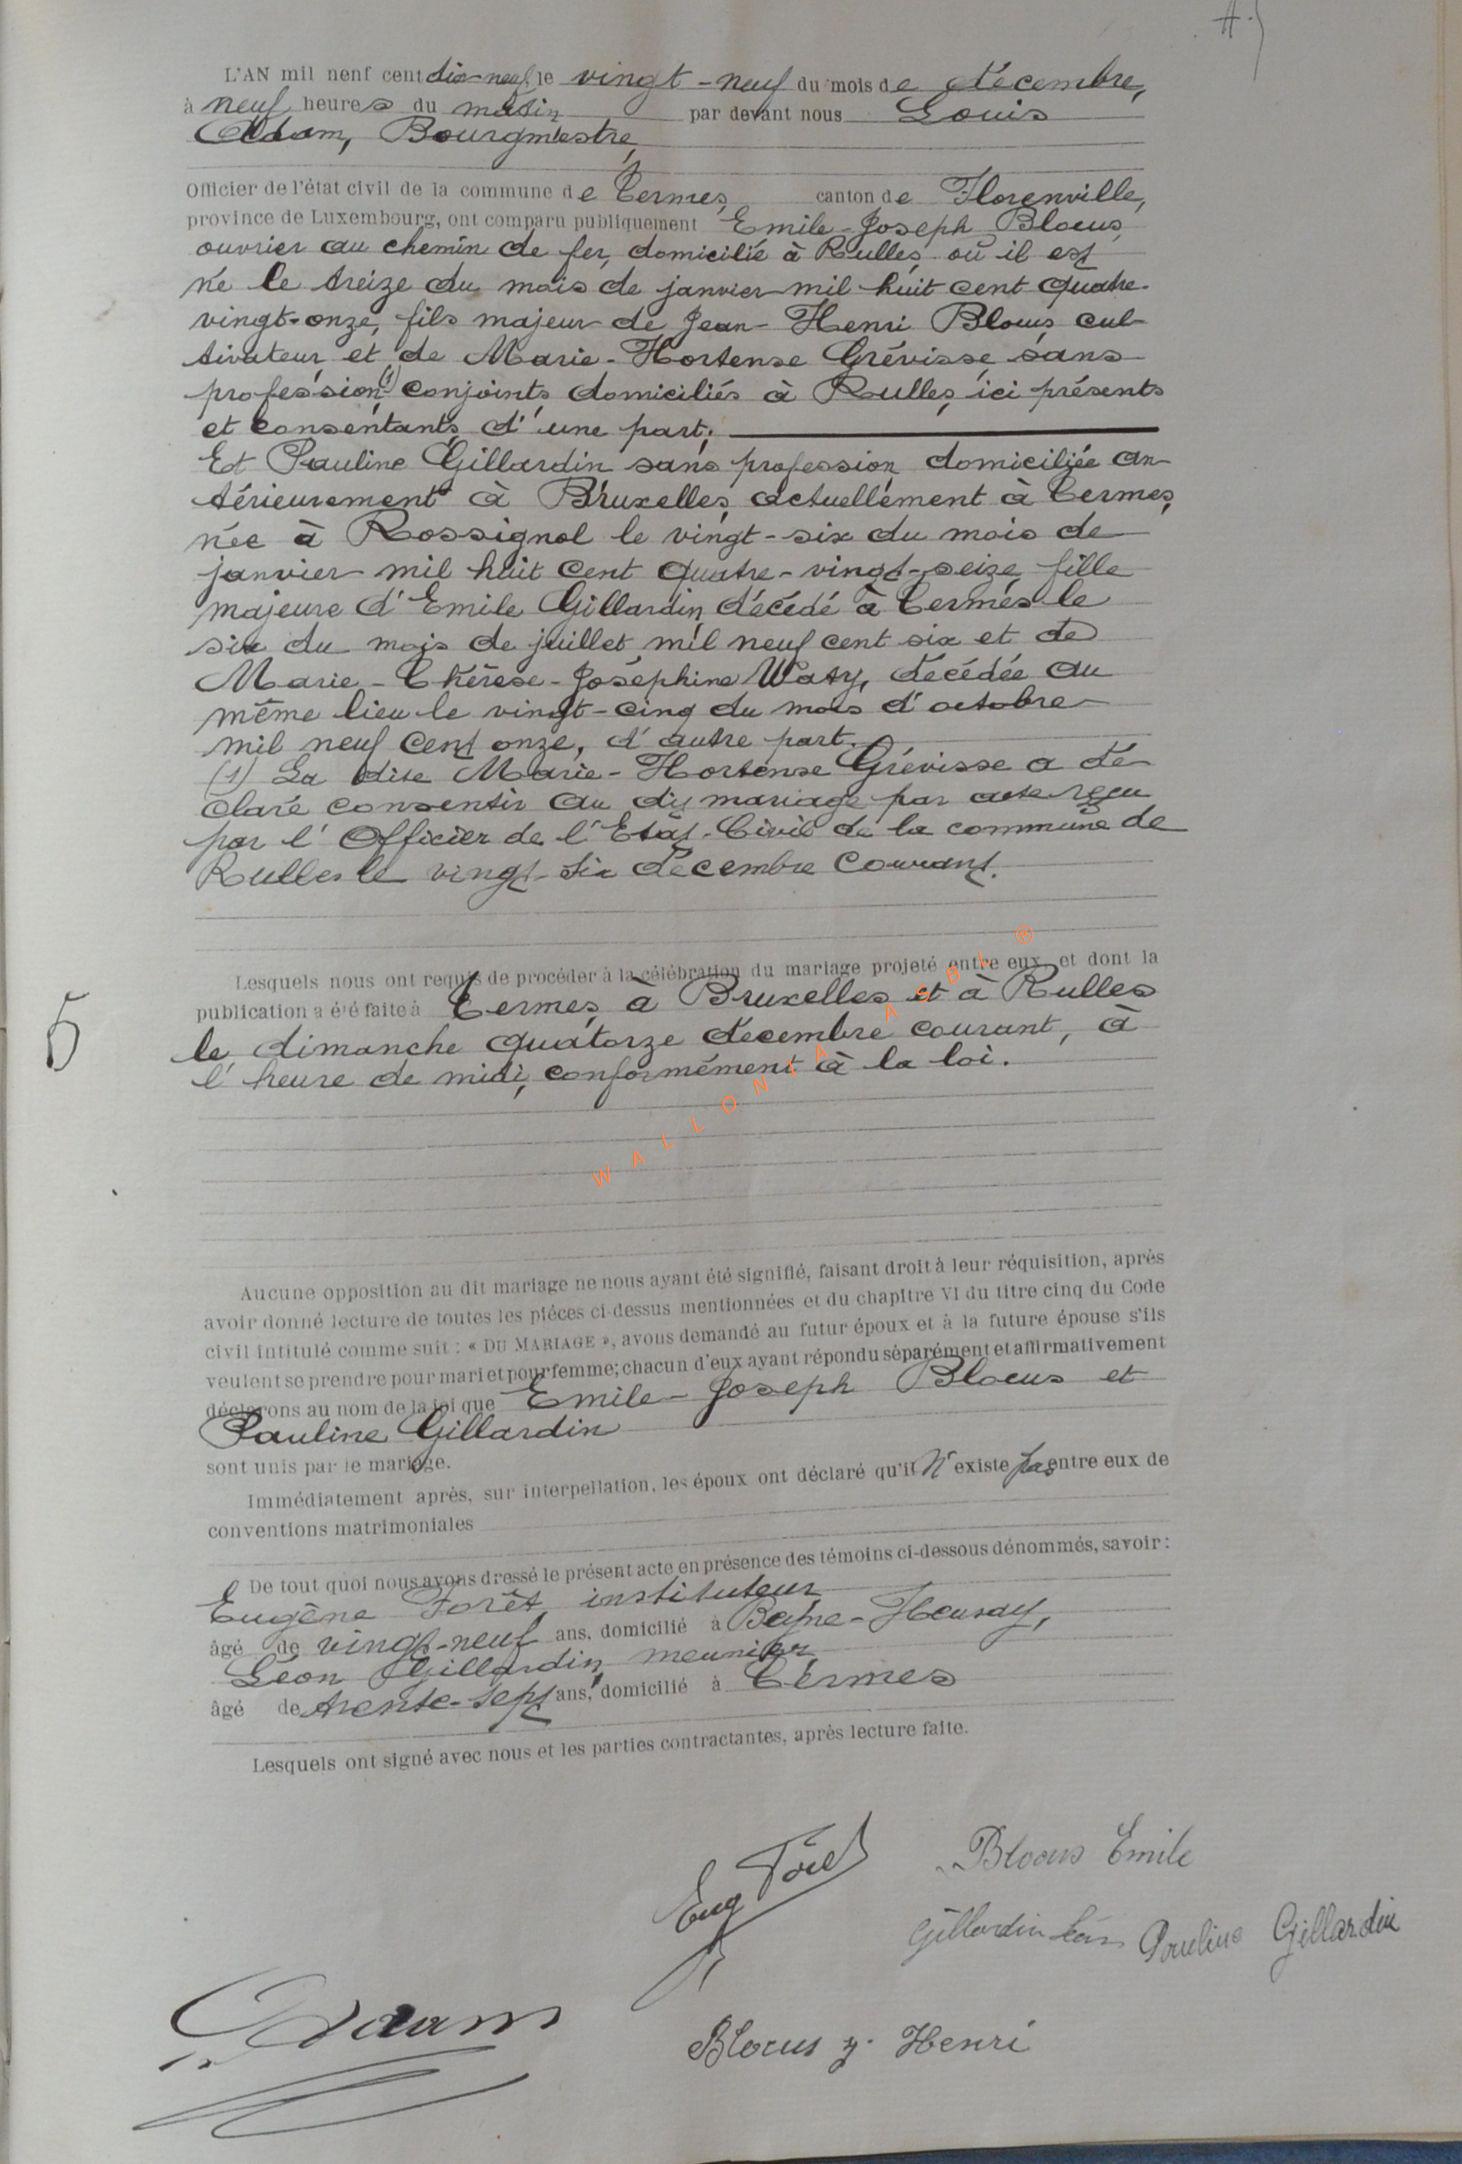 L'AN mil neuf cent dix-neuf, le vingt-neuf du mois de décembre,
à neuf heures du matin par devant nous Louis
Adam, Bourgmestre,
Officier de l'état civil de la commune de Termes, canton de Florenville,
province de Luxembourg, ont comparu publiquement Emile-Joseph Blocus,
ouvrier au chemin de fer, domicilié à Rulles, où il est
né le treize du mois de janvier mil huit cent quatre-
vingt-onze, fils majeur de Jean-Henri Blocus, cul-
tivateur, et de Marie-Hortense Grévisse, sans
profession,(1) conjoints, domiciliés à Rulles, ici présents
et consentants d'une part;
Et Pauline Gillardin sans profession, domiciliée an-
térieurement à Bruxelles, actuellement à Termes,
née à Rossignol le vingt-six du mois de
janvier mil huit cent quatre-vingt-seize, fille
majeure d'Emile Gillardin, décédé à Termes le
six du mois de juillet mil neuf cent six et de
Marie-Thérèse-Joséphine Waty, décédée au
même lieu le vingt-cinq du mois d'octobre
mil neuf cent onze, d'autre part.
(1) La dite Marie-Hortense Grévisse a dé-
claré consentir au dit mariage par acte reçu
par l'Officier de l'Etat-Civil de la commune de
Rulles le vingt-six décembre courant.
Lesquels nous ont requis de procéder à la célébration du mariage projeté entre eux et dont la
publication a été faite à Termes, à Bruxelles et à Rulles
le dimanche quatorze décembre courant, à
l'heure de midi, conformément à la loi.
5
WALLONIA ASBL ®
Aucune opposition au dit mariage ne nous ayant été signifié, faisant droit à leur réquisition, après
avoir donné lecture de toutes les pièces ci-dessus mentionnées et du chapitre VI du titre cinq du Code
civil intitulé comme suit : « DU MARIAGE », avons demandé au futur époux et à la future épouse s'ils
veulent se prendre pour mari et pour femme; chacun d'eux ayant répondu séparément et affirmativement
déclarons au nom de la loi que Emile-Joseph Blocus et
Pauline Gillardin
sont unis par le mariage.
Immédiatement après, sur interpellation, les époux ont déclaré qu'il N'existe pas entre eux de
conventions matrimoniales
De tout quoi nous avons dressé le présent acte en présence des témoins ci-dessous dénommés, savoir :
Eugène Forêt, instituteur,
âgé de vingt-neuf ans, domicilié à Beyne-Heusay,
Léon Gillardin, meunier,
âgé de trente-sept ans, domicilié à Termes
Lesquels ont signé avec nous et les parties contractantes, après lecture faite.
Eug Forêt
Blocus Emile
Gillardin Léon Pauline Gillardin
Adam
Blocus J. Henri